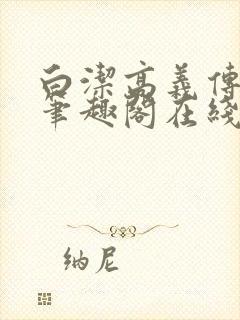 白潔高義傳
筆趣閣在綫
纳尼